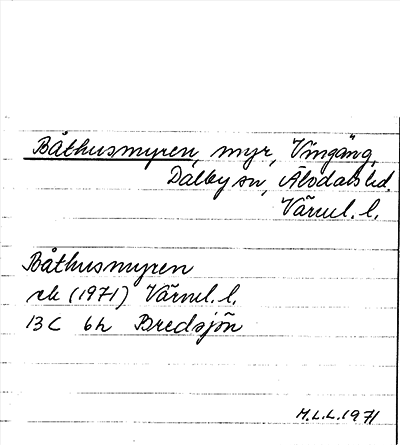 Båthusmyren, myr, Vingäng,
Dalby sn, Älvdals hd.
Värml. l.
Båthusmyren
ek (1971) Värml. l.
13C 6h Bredsjön
M.L.L. 1971